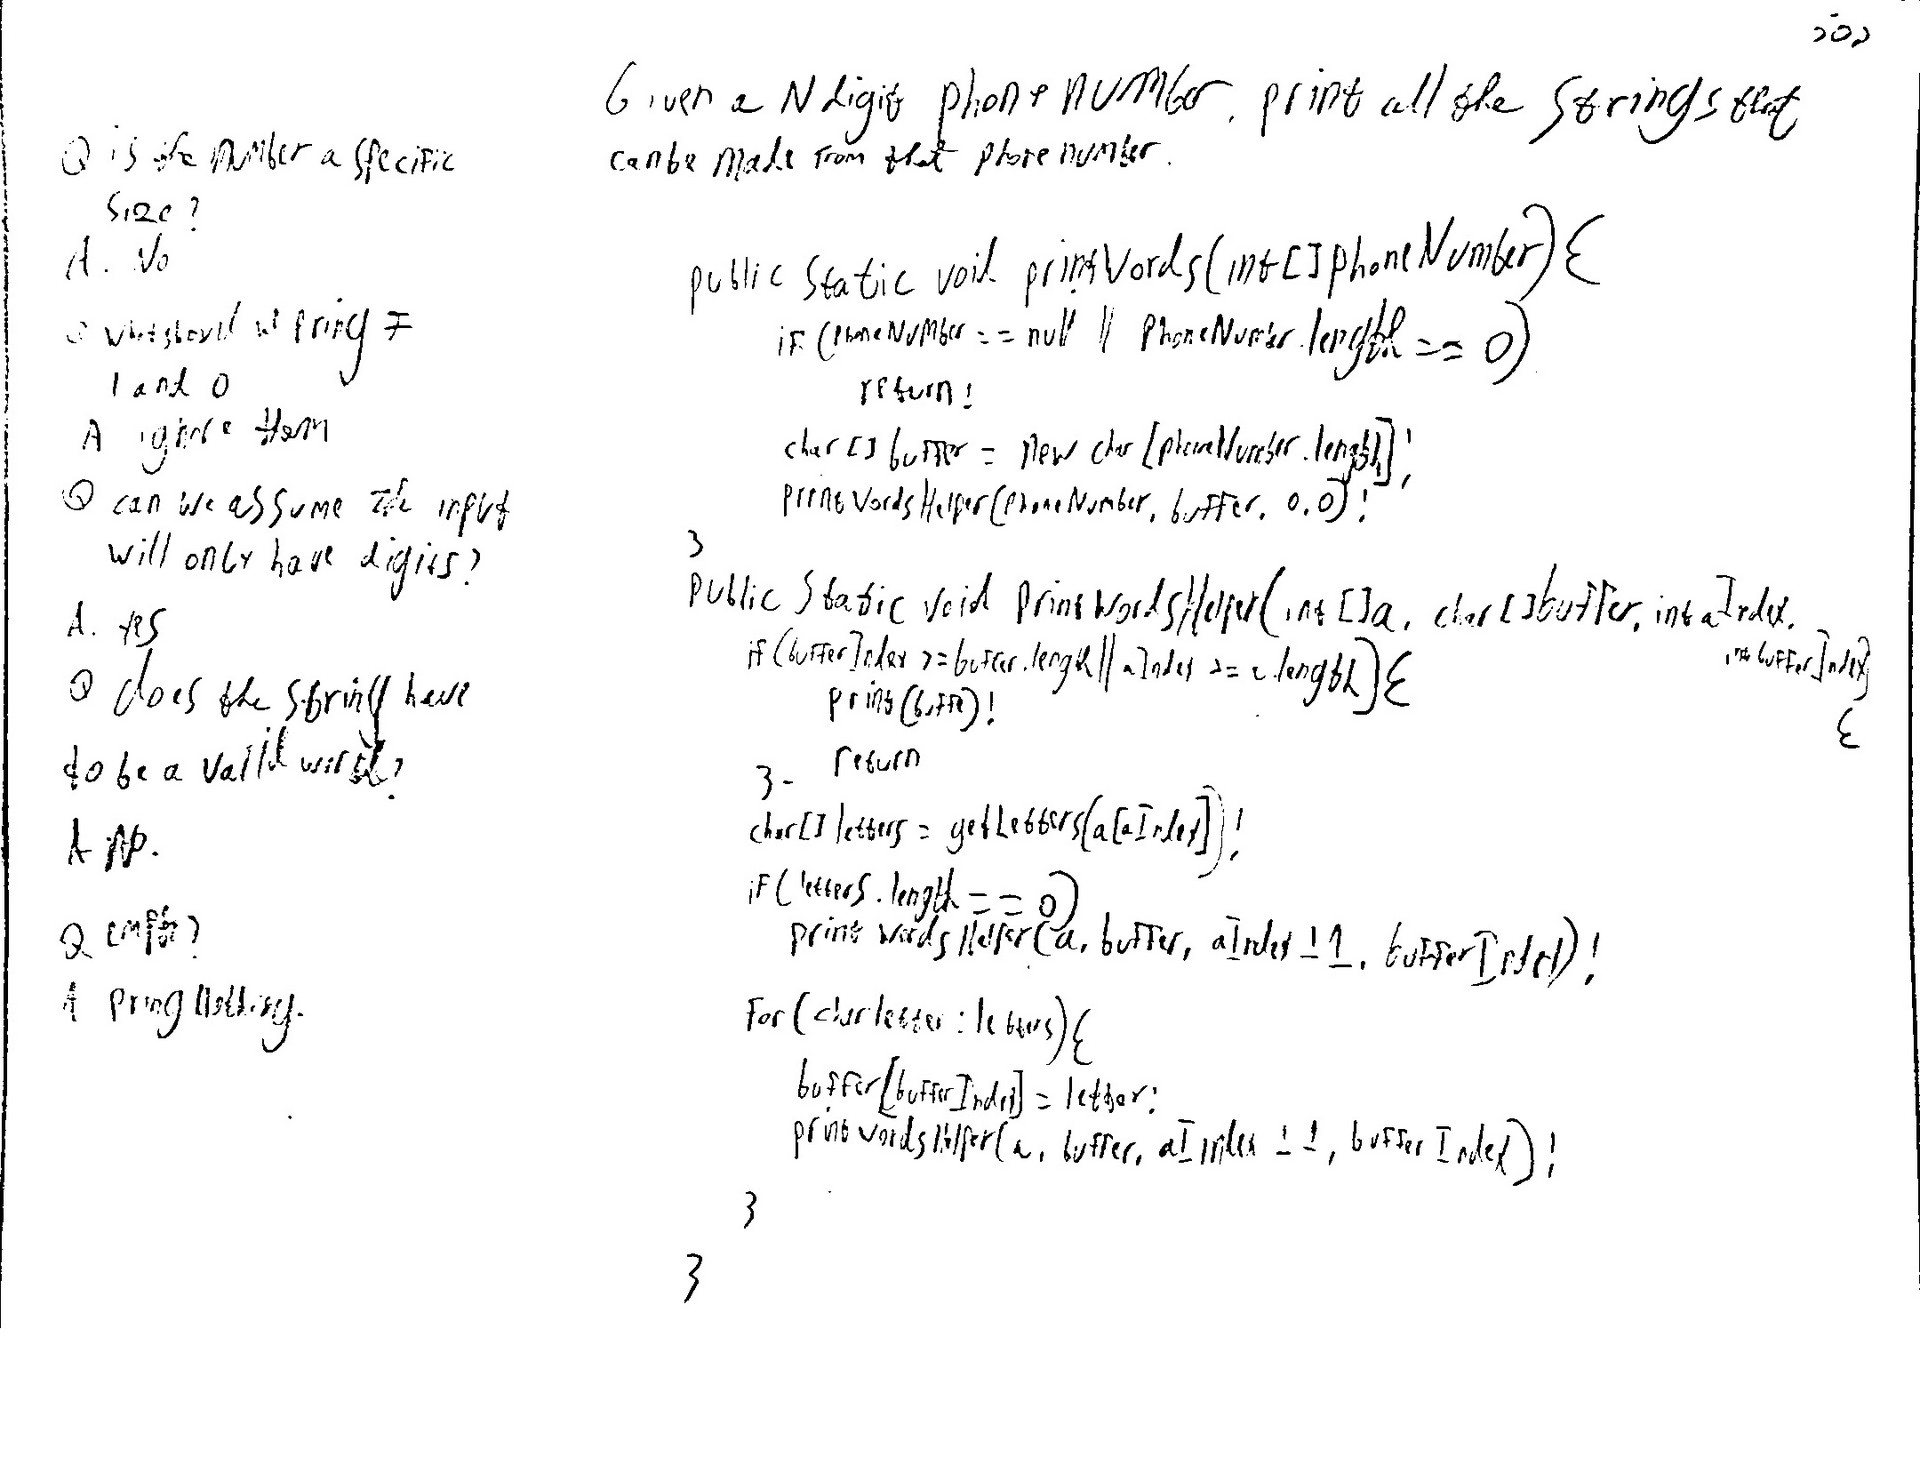 202
Given a N digit phone number, print all the strings that
can be made from that phone number.
Q is the number a specific
size?
A. No
Q what should we pring F
1 and 0
A ignore them
Q can we assume the input
will only have digits?
A. yes
Q does the string have
to be a valid word?
A No.
Q empty?
A pring Nothing.
public static void printWords(int[] phoneNumber){
if (phoneNumber == null || phoneNumber.length == 0)
return;
char[] buffer = new char[phoneNumber.length];
printWordsHelper(phoneNumber, buffer, 0,0);
}
public static void printWordsHelper(int[]a, char[]buffer, int aIndex,
int bufferIndex)
{
if (bufferIndex >= buffer.length || aIndex >= a.length){
print(buffe);
return
}
char[] letters = getLetters(a[aIndex]);
if (letters.length == 0)
printWordsHelper(a, buffer, aIndex+1, bufferIndex);
For (char letter : letters){
buffer[bufferIndex] = letter;
printWordsHelper(a, buffer, aIndex+1, bufferIndex);
}
}